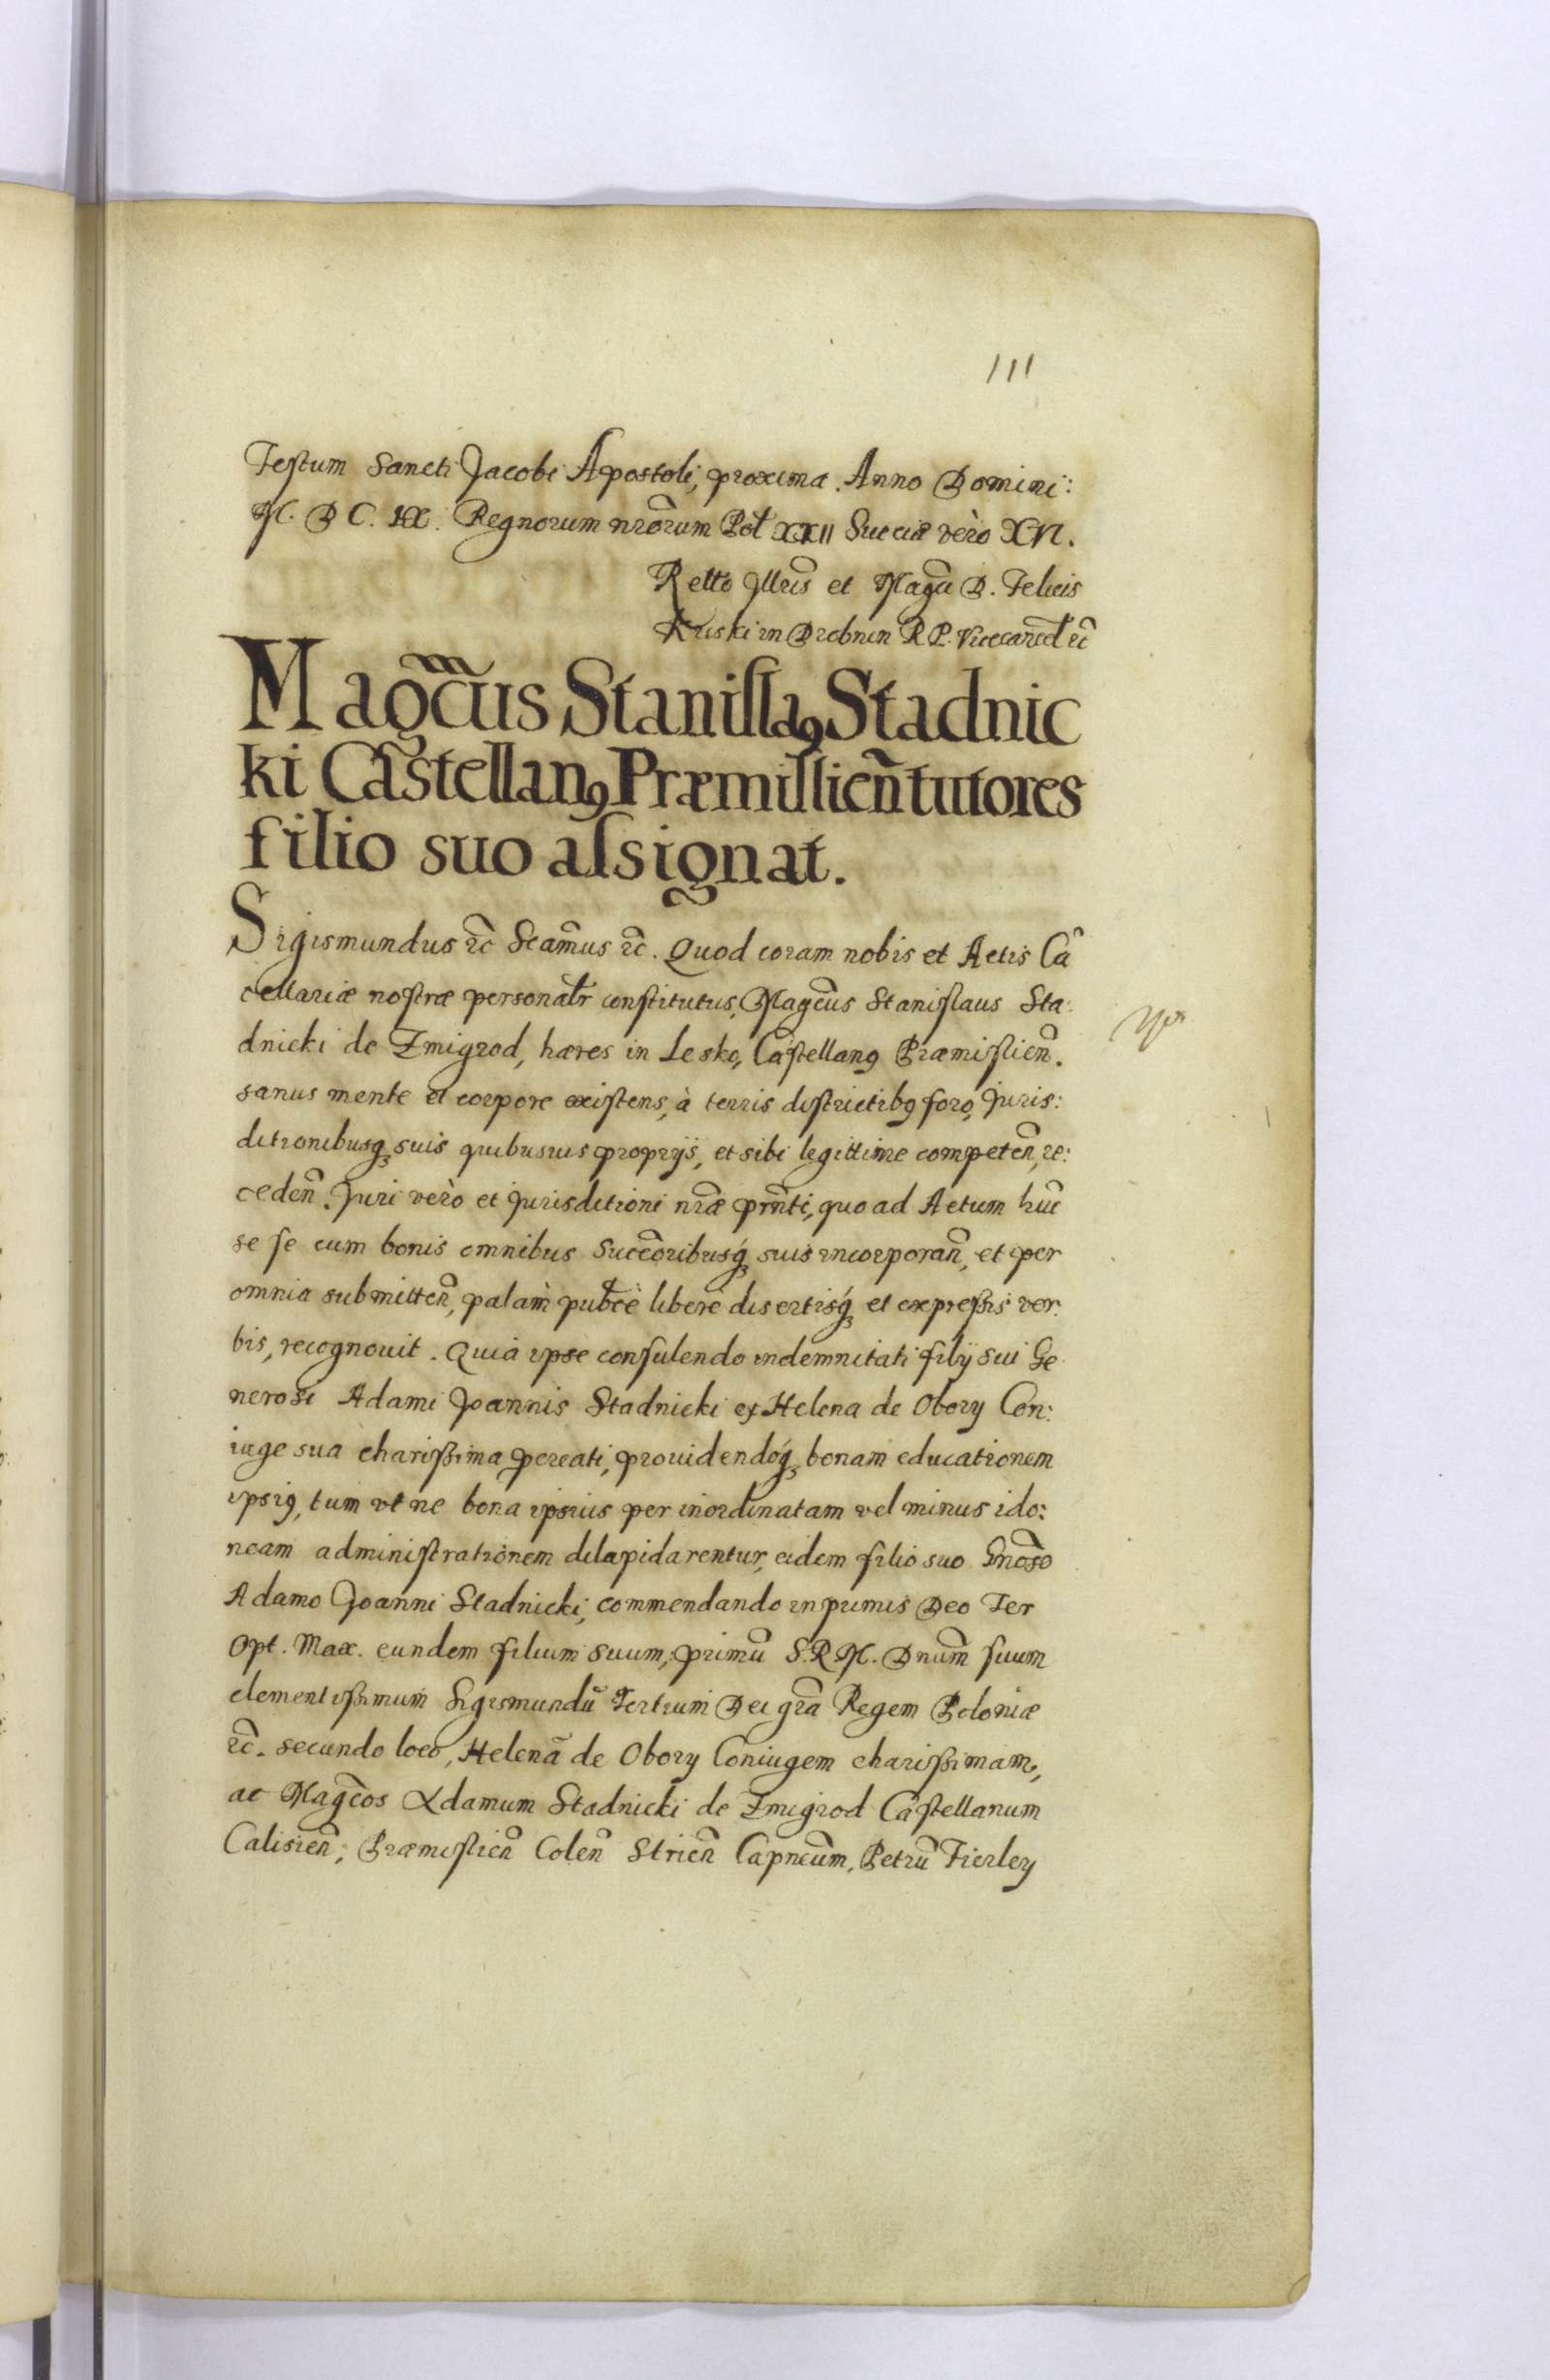 111
Festum Sancti Jacobi Apostoli, proxima. Anno Domini:
M. D C. IX. Regnorum nr̃orum Pol XXII Sueciæ verò XVI.
Rel̃to Jllr̃is et Mag̃ci D. Felicis
Kriski in Drobnin R. P. Vicecancel ꝛc̃
Mag̃cus Stanislaꝰ Stadnic
ki Castellanꝰ Præmislien̄ tutores
filio suo assignat.
Sigismundus ꝛc̃ Scam̃us ꝛc̃. Quod coram nobis et Actis Cã
cellariæ nostræ personal̃r constitutus, Mag̃cus Stanislaus Sta:
dnicki de Zmigrod, hæres in Lesko, Castellanꝰ Præmislien̄.
sanus mente et corpore existens, à terris districtibꝰ foro, Juris:
ditionibusqꝫ suis quibusuis proprijs, et sibi legittime competen̄, re:
ceden̄. Juri verò et Jurisditioni nr̃æ prñti, quo ad Actum huñc
se se cum bonis omnibus Succõribusqꝫ suis incorporan̄, et per
omnia submitten̄, palàm publ̃cè liberè disertisqꝫ et expressis ver:
bis, recognouit. Quia ipse consulendo indemnitati filij sui Ge
nerosi Adami Joannis Stadnicki ex Helena de Obory Con:
iuge sua charissima pcreati, prouidendoqꝫ bonam educationem
ipsiꝰ, tum vt ne bona ipsius per inordinatam vel minus ido:
neam administrationem dilapidarentur, eidem filio suo Gnõso
Adamo Joanni Stadnicki, commendando inprimis Deo Ter
Opt. Max. eundem filium suum, primũ S. R. M. Dnũm suum
clementissimum Sigismundũ Tertium Dei gr̃a Regem Poloniæ
ꝛc̃. secundo loco, Helenã de Obory Coniugem charissimam,
ac Mag̃cos Adamum Stadnicki de Zmigrod Castellanum
Calisien̄, Præmislien̄ Colen̄ Strien̄ Capneũm, Petrũ Fierley